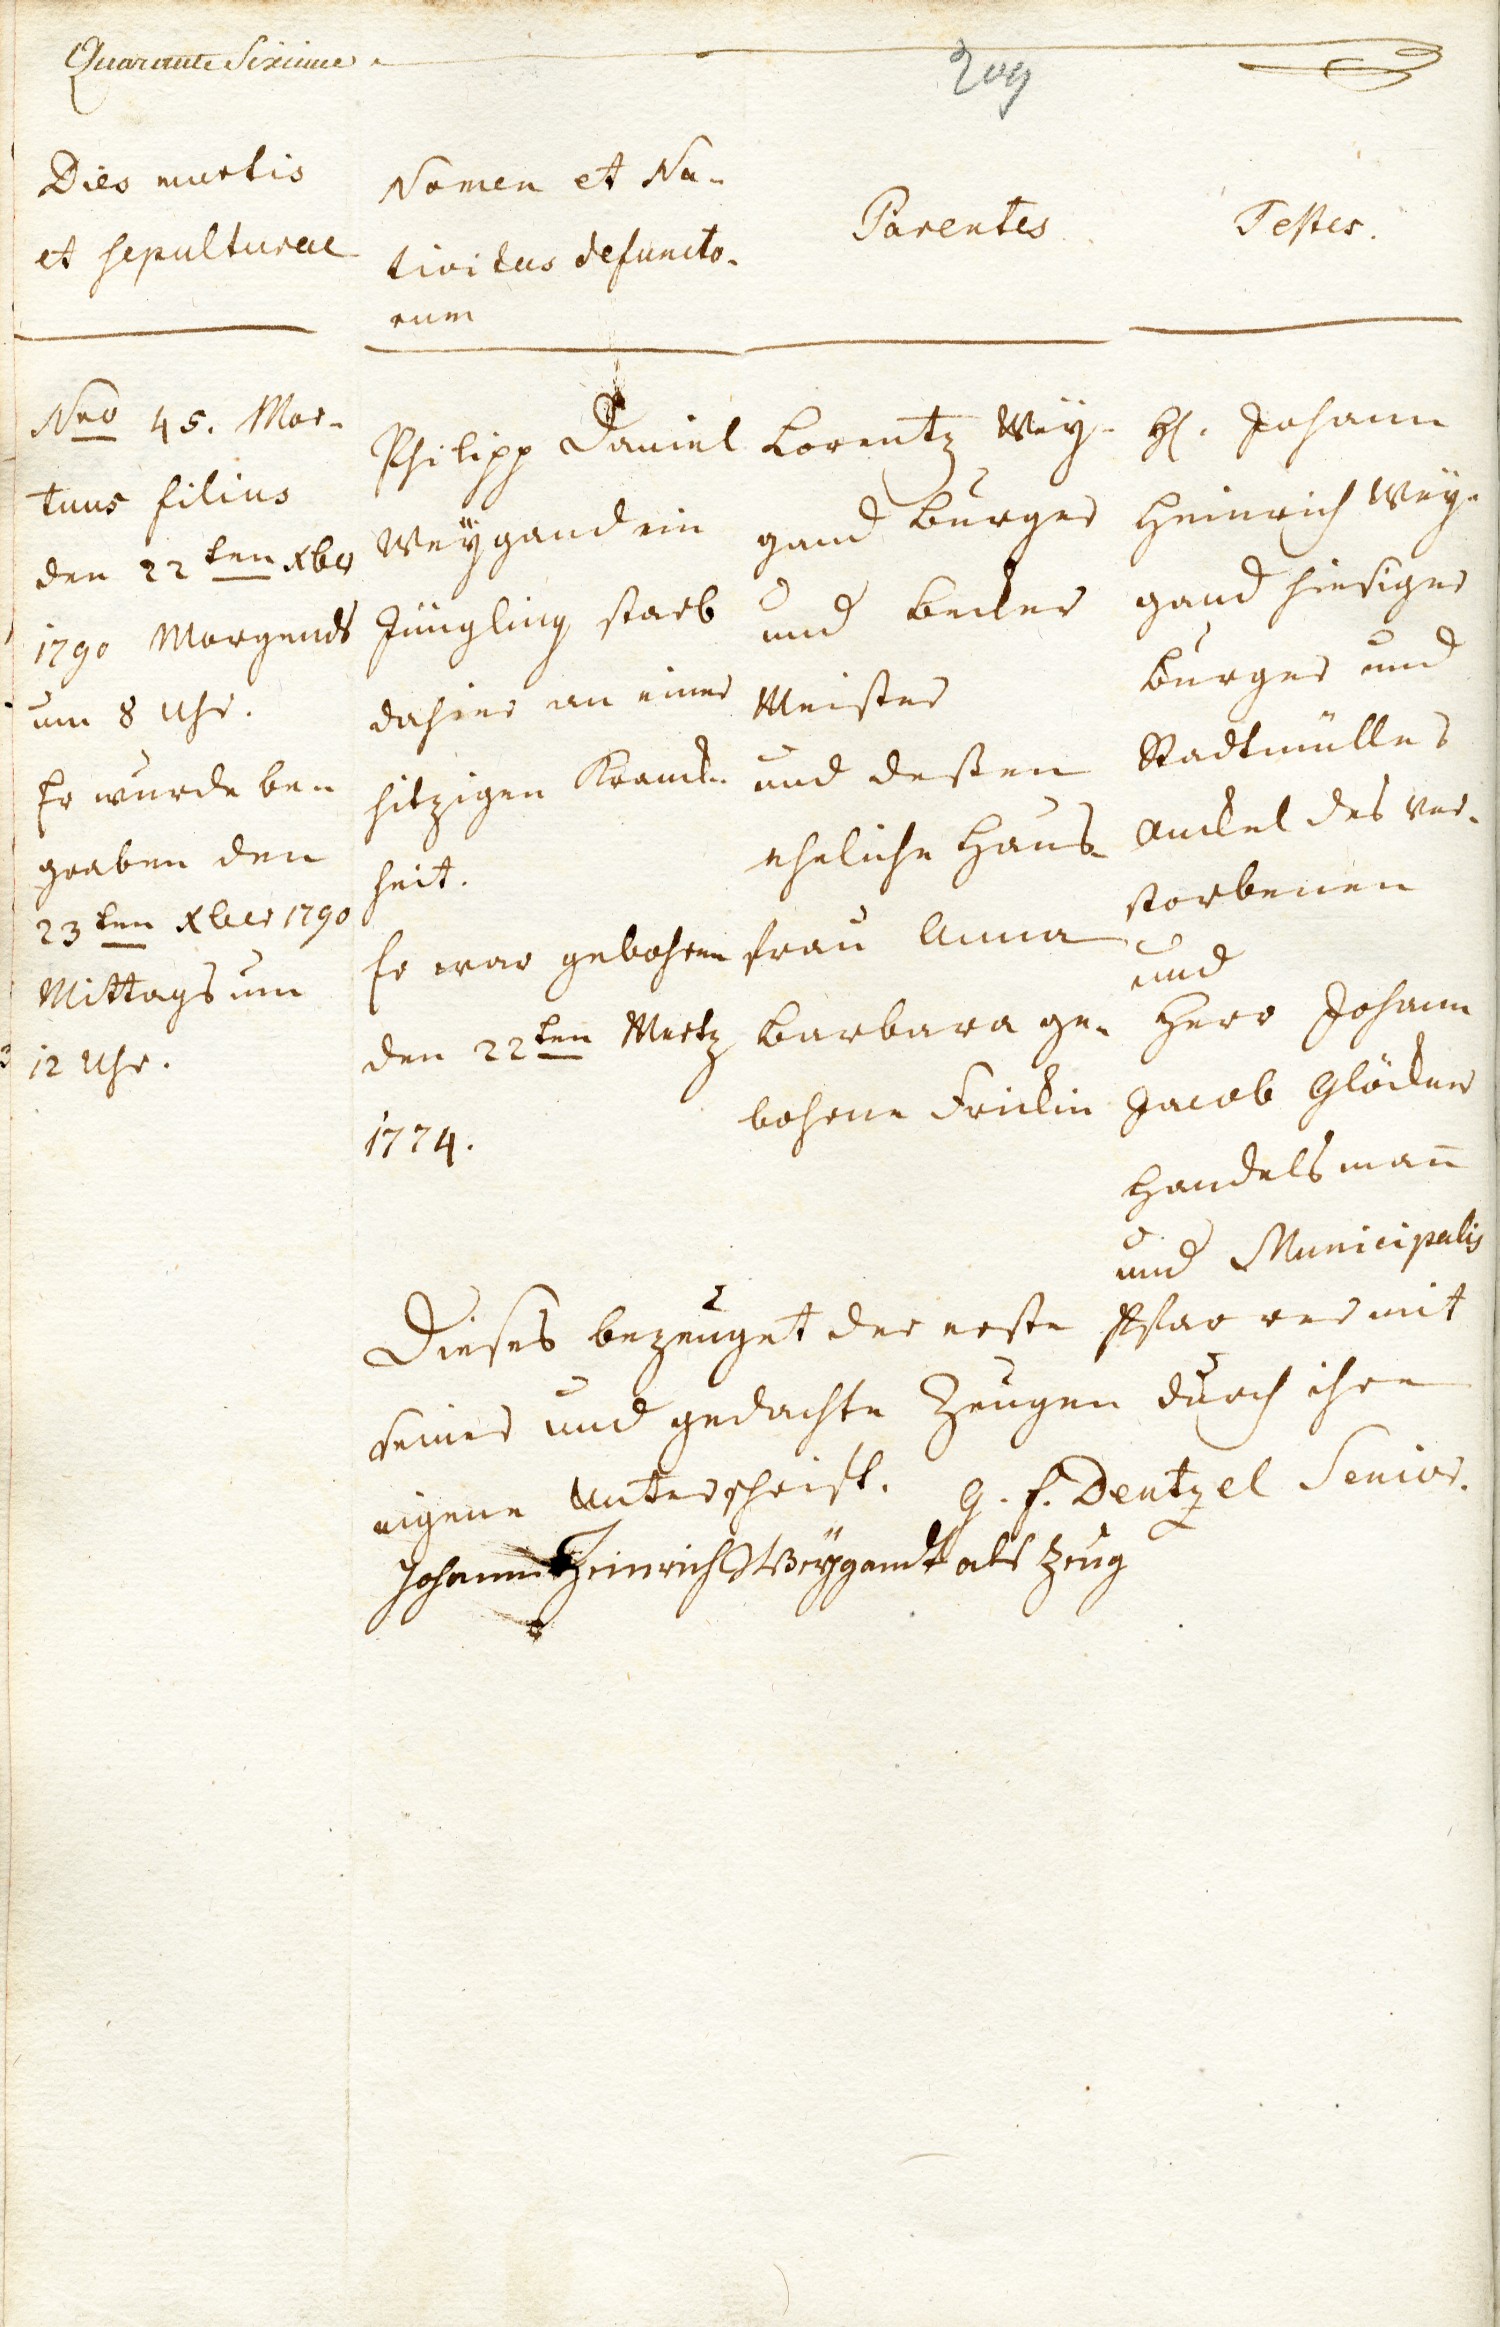 Quarante Sixieme
209
Dies mortis
et sepulturae
Nomen et Na-
tivitas defuncto-
rum
Parentes
Testes.
Nro 45. Mor-
tuus filius
den 22ten Xber
1790 Morgends
um 8 Uhr.
Er wurde be-
graben den
23ten Xber 1790
Mittags um
12 Uhr.
Philipp Daniel
Weÿgand ein
Jüngling starb
dahier an einer
hitzigen Kranck-
heit.
Er war gebohren
den 22ten Mertz
1774.
Lorentz Weÿ-
gand Burger
und Becker
Meister
und deßen
eheliche Haus-
frau Anna
Barbara ge-
bohrne Frickin
H. Johann
Heinrich Weÿ-
gand hiesiger
Burger und
Stadtmüller
Onckel des ver-
storbenen
und
Herr Johann
Jacob Glöckner
Handelsmañ
und Municipalis
Dieses bezeuget der erste Pfarrer mit
seiner und gedachte Zeugen durch ihre
eigene Unterschrift. G. F. Dentzel Senior.
Johann Heinrich Weÿgandt als Zeug